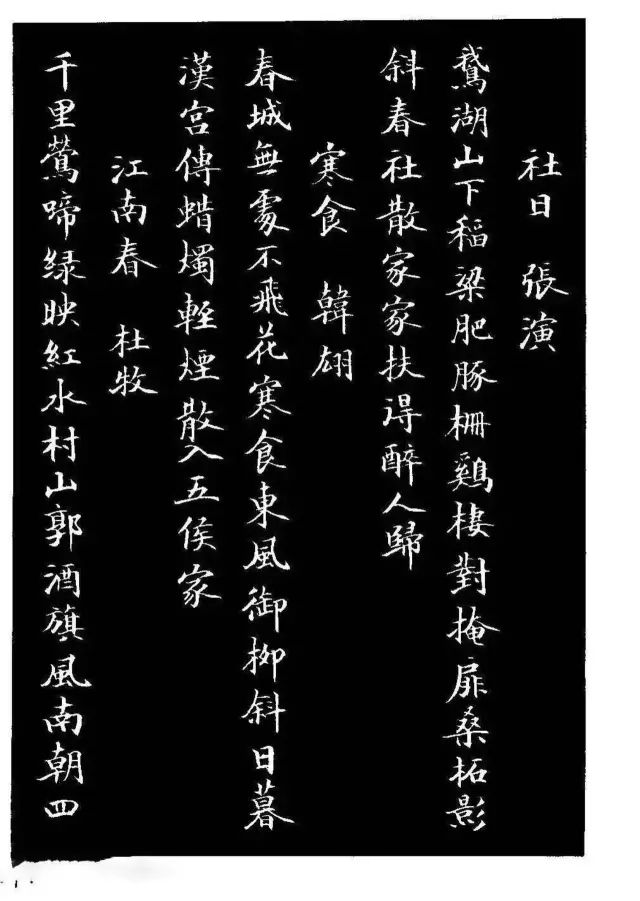 社日 張演
鵞湖山下稲粱肥豚柵鷄棲對掩扉桑柘影
斜春社散家家扶得醉人歸
寒食 韓翃
春城無處不飛花寒食東風御柳斜日暮
漢宮傳蜡燭輕煙散入五侯家
江南春 杜牧
千里鶯啼緑映紅水村山郭酒旗風南朝四